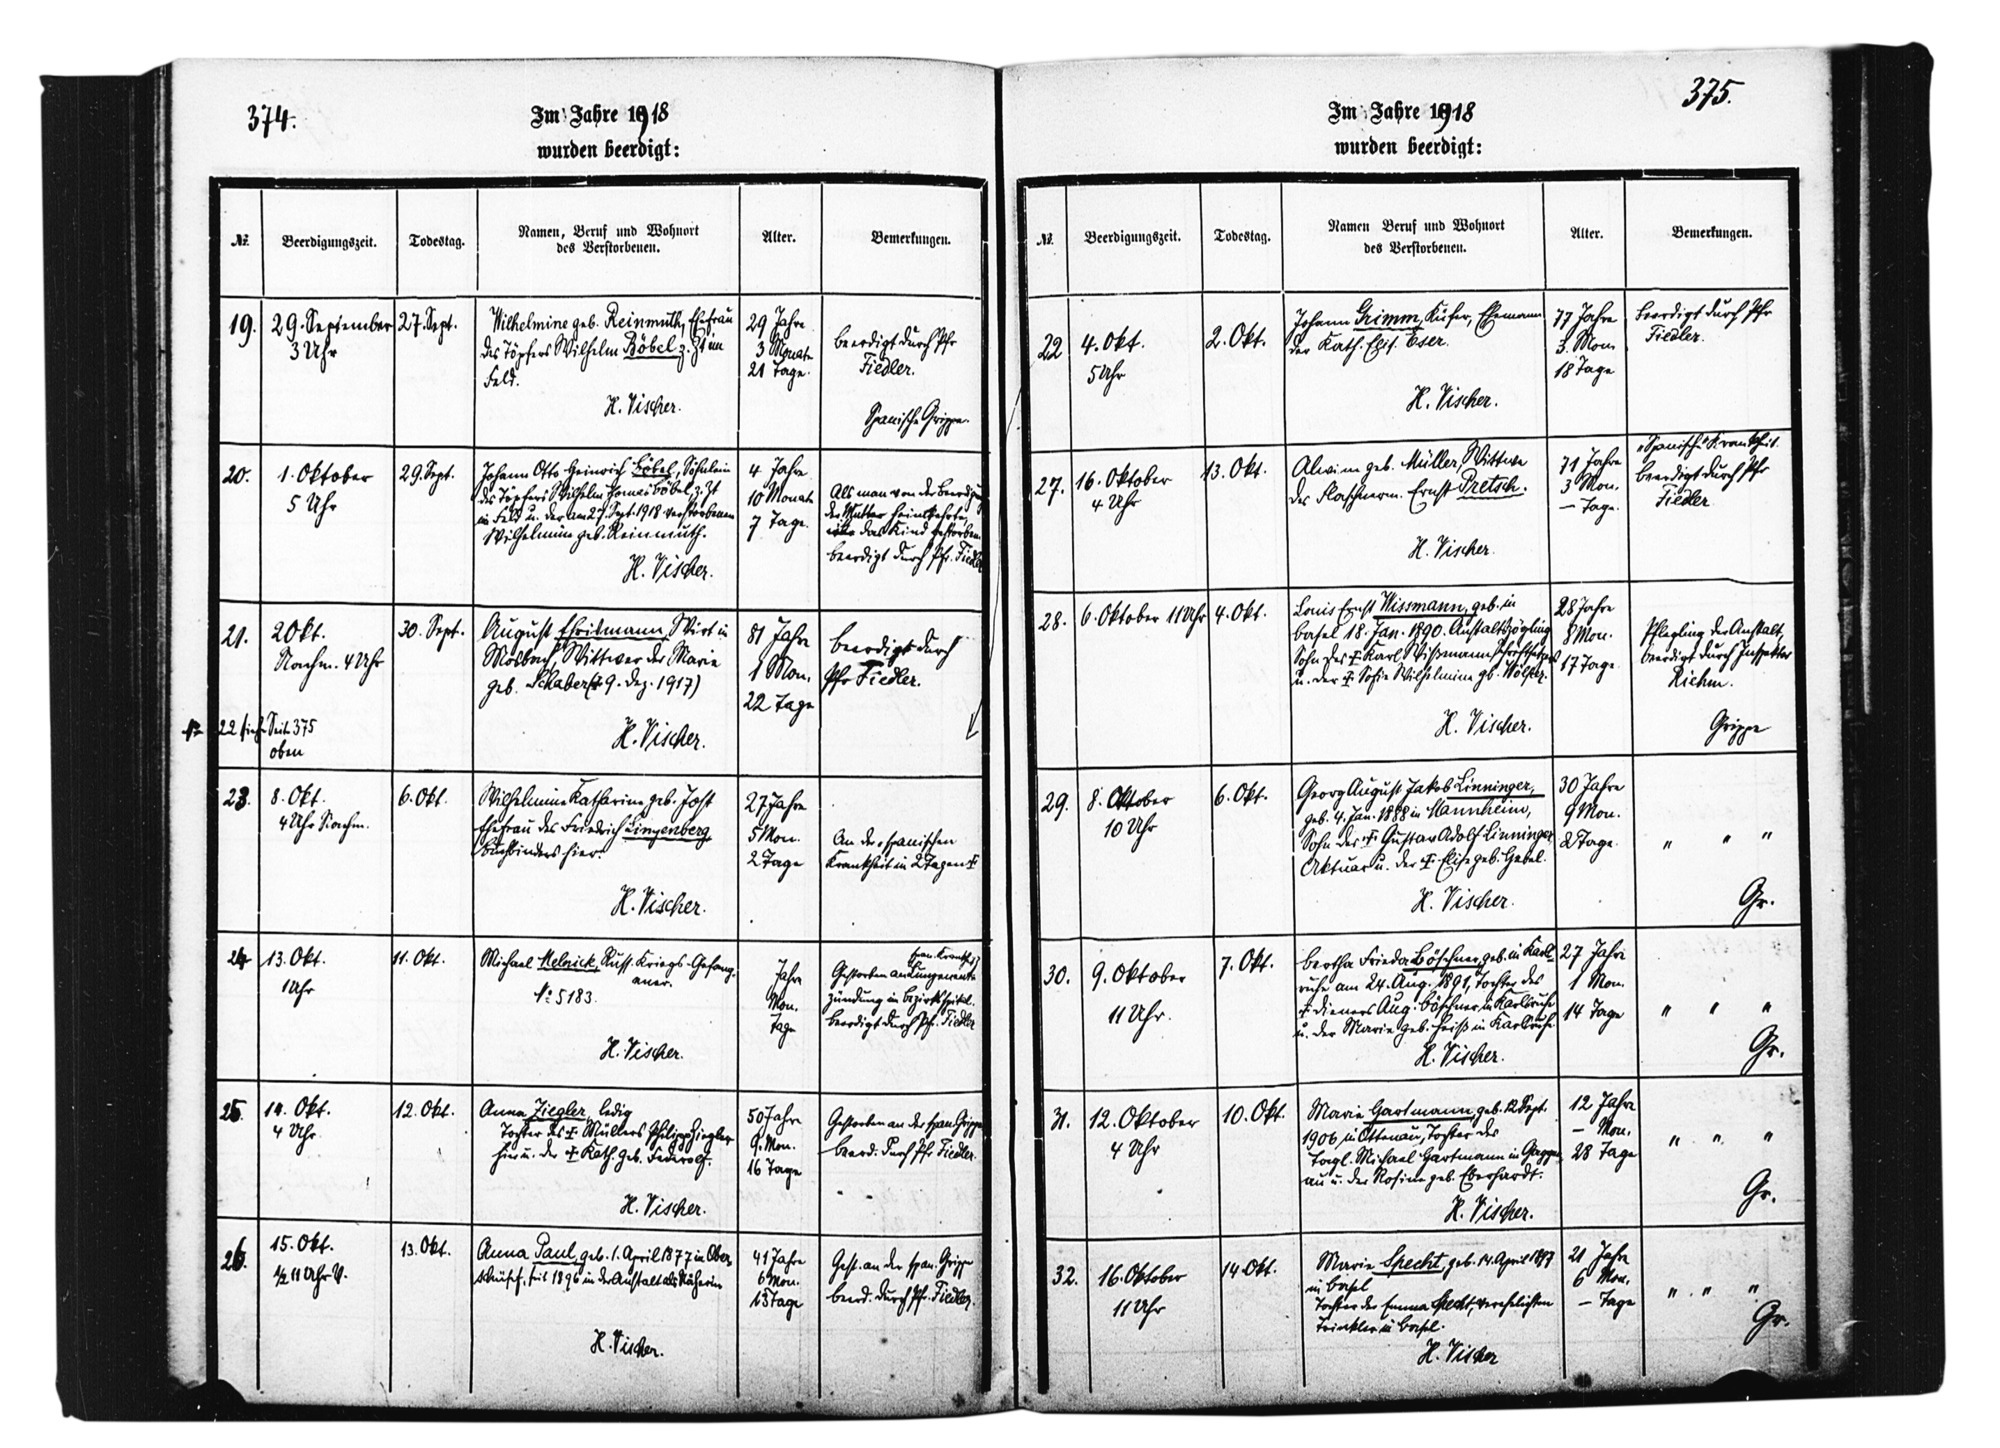 374.
Im Jahre 1918
wurden beerdigt:
№.
Beerdigungszeit.
Todestag.
Namen, Beruf und Wohnort
des Verstorbenen.
Alter.
Bemerkungen.
19.
29. September
3 Uhr
27. Sept.
Wilhelmine geb. Reinmuth, Ehefrau
des Töpfers Wilhelm Böbel z. Zt im
Feld.
H. Vischer.
29 Jahre
3 Monate
21 Tage.
beerdigt durch Pfr
Fiedler.
Spanische Grippe.
20.
1. Oktober
5 Uhr
29. Sept.
Johann Otto Heinrich Böbel, Söhnlein
des Töpfers Wilhelm Böbel z. Zt
im Feld u. der am 27. Sept. 1918 verstorbenen
Wilhelmine geb. Reinmuth.
H. Vischer.
4 Jahre
10 Monate
7 Tage.
Als man von der Beerdigung
der Mutter heimkehrte,
das Kind gestorben.
beerdigt durch Pfr. Fiedler
21.
2 Okt.
Nachm. 4 Uhr
30. Sept.
August Ehrismann, Wirt in
Mosbach, Wittwer der Marie
geb. Schaber († 9. Dez. 1917)
H. Vischer.
81 Jahre
1 Mon.
22 Tage
beerdigt durch
Pfr Fiedler.
№ 22 siehe Seite 375
oben
23.
8. Okt.
4 Uhr Nachm.
6. Okt.
Wilhelmine Katharine geb. Jost
Ehefrau des Friedrich Lingenberg
Buchbinders hier.
H. Vischer.
27 Jahre
5 Mon.
2 Tage
An der spanischen
Krankheit in 2 Tagen †
24
13. Okt.
1 Uhr
11. Okt.
Michael Melnick, Russ. Kriegs-Gefang-
aner.
№ 5183.
H. Vischer.
Jahre
Mon.
Tage
span. Krankh.
Gestorben an Lungenent-
zündung in Bezirksspital.
beerdigt durch Pfr. Fiedler
25.
14. Okt.
4 Uhr
12. Okt.
Anna Ziegler, ledig
Tochter des † Müllers Philipp Ziegler
hier u. der † Kath. geb. Federolf.
H. Vischer.
50 Jahre
9. Mon.
16 Tage
Gestorben an der span. Grippe
beerd. durch Pfr. Fiedler.
26.
15. Okt.
½ 11 Uhr V.
13. Okt.
Anna Paul, geb. 1. April 1877 in Ober-
seit 1896 in der Anstalt als Näherin
H. Vischer.
41 Jahre
6 Mon.
13 Tage
Gest. an der span. Grippe
beerd. durch Pfr. Fiedler.
375.
Im Jahre 1918
wurden beerdigt:
№.
Beerdigungszeit.
Todestag.
Namen Beruf und Wohnort
des Verstorbenen.
Alter.
Bemerkungen.
22
4. Okt.
5 Uhr
2. Okt.
Johann Grimm, Küfer, Ehemann
der Kath. Elis. Eser.
H. Vischer.
77 Jahre
3. Mon.
18 Tage
beerdigt durch Pfr
Fiedler.
27.
16. Oktober
4 Uhr
13. Okt.
Alwine geb. Müller, Wittwe
des Flaschnerm. Ernst Pretsch.
H. Vischer.
71 Jahre
3 Mon.
– Tage.
"Spanische" Krankheit.
beerdigt durch Pfr
Fiedler
28.
6. Oktober 11 Uhr
4. Okt.
Louis Ernst Wissmann, geb. in
Basel 18. Jan. 1890. Anstaltszögling
Sohn des † Karl Wißmann Schriftsetzers
u. der † Sofie Wilhelmine gb. Wölfer.
H. Vischer.
28 Jahre
8 Mon.
17 Tage.
Pflegling der Anstalt,
beerdigt durch Inspektor
Riehm.
Grippe
29.
8. Oktober
10 Uhr
6. Okt.
Georg August Jakob Linninger,
geb. 4. Jan. 1888 in Mannheim,
Sohn des † Gustav Adolf Linninger,
Aktuar u. der † Elise geb. Gabel.
H. Vischer.
30 Jahre
9 Mon.
2 Tage.
" " "
Gr.
30.
9. Oktober
11 Uhr.
7. Okt.
Bertha Frieda Böschner, geb. in Karls-
ruhe am 24. Aug. 1891, Tochter des
† Dieners Aug. Böschner in Karlsruhe
u. der Marie geb. Heiß in Karlsruhe
H. Vischer.
27 Jahre
1 Mon.
14 Tage
" " "
Gr.
31.
12. Oktober
4 Uhr
10. Okt.
Marie Gartmann, geb. 12. Sept.
1906 in Ottenau, Tochter des
Tagl. Michael Gartmann in Gaggen-
au u. der Rosine geb. Eberhardt.
H. Vischer.
12 Jahre
– Mon.
28 Tage
" " "
Gr.
32.
16. Oktober
11 Uhr
14 Okt.
Marie Specht, geb. 14. April 1897
in Basel
Tochter der Emma Specht, verehelichten
Trinkler in Basel.
H. Vischer
21 Jahre
6 Mon.
– Tage
" " "
Gr.